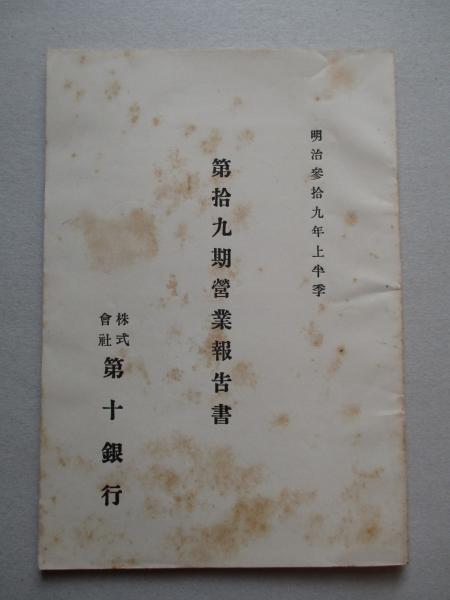 明治參拾九年上半季
第拾九期營業報告書
株式會社第十銀行